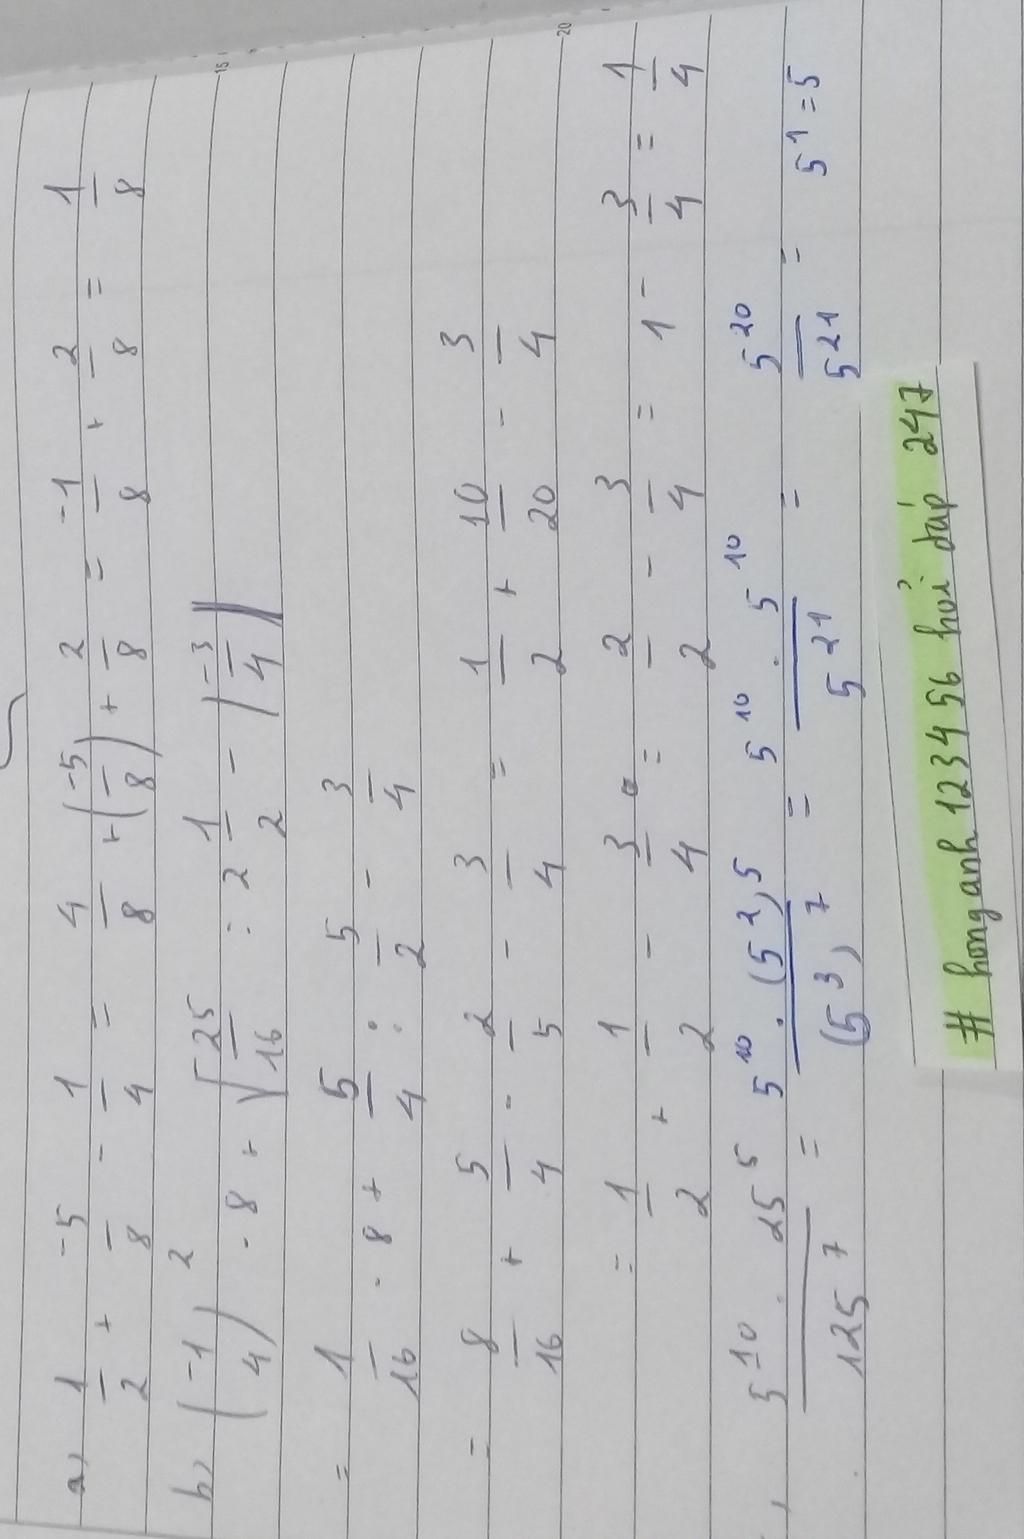 a) 1/2 + -5/8 - 1/4 = 4/8 + (-5/8) + 2/8 = -1/8 + 2/8 = 1/8
b) (-1/4)² . 8 + √25/16 : 2 1/2 - |-3/4|
= 1/16 . 8 + 5/4 : 5/2 - 3/4
= 8/16 + 5/4 . 2/5 - 3/4 = 1/2 + 10/20 - 3/4
= 1/2 + 1/2 - 3/4 = 2/2 - 3/4 = 1 - 3/4 = 1/4
5¹⁰ . 25⁵ / 125⁷ = 5¹⁰ . (5²)⁵ / (5³)⁷ = 5¹⁰ . 5¹⁰ / 5²¹ = 5²⁰ / 5²¹ = 5¹ = 5
# honganh 123456 hỏi đáp 247
15
20